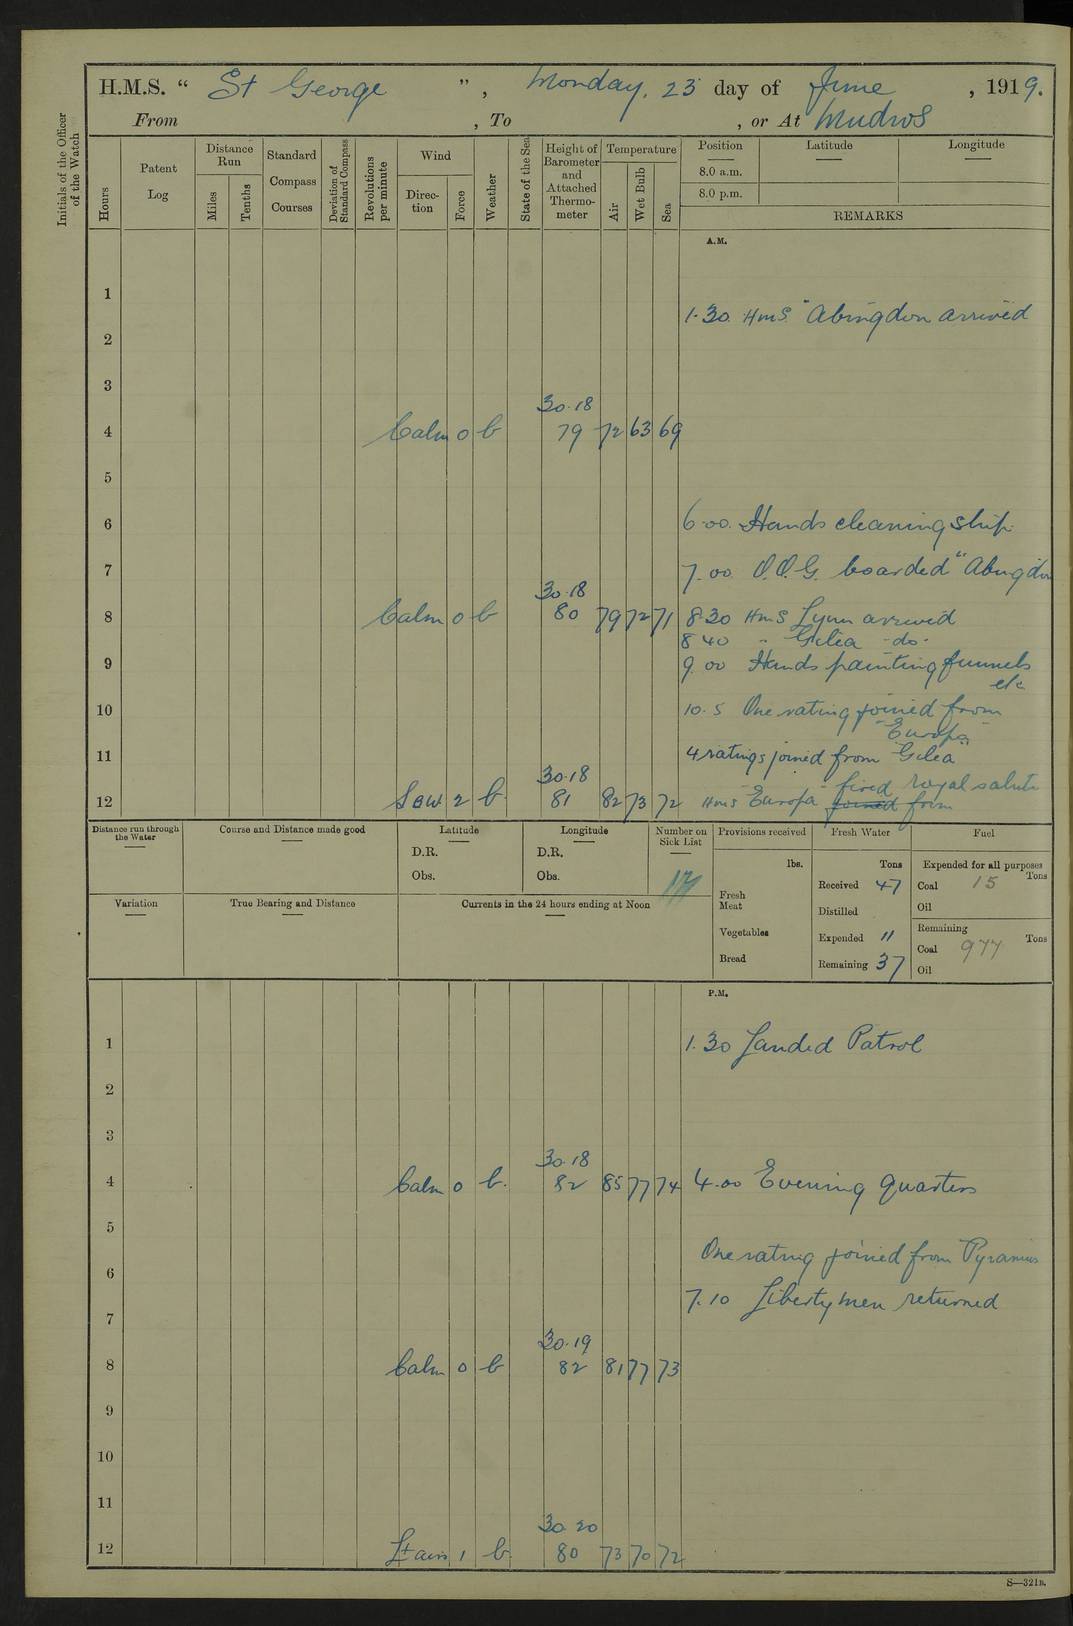 H.M.S. “ St George ” , Monday, 23 day of June , 1919.
From , To , or At Mudros
Initials of the Officer of the Watch
Hours
Patent Log
Distance Run
Miles
Tenths
Standard Compass Courses
Deviation of Standard Compass
Revolutions per minute
Wind
Direction
Force
Weather
State of the Sea
Height of Barometer and Attached Thermometer
Temperature
Air
Wet Bulb
Sea
Position
Latitude
Longitude
8.0 a.m.
8.0 p.m.
REMARKS
A.M.
1
1.30 HMS "Abingdon arrived
2
3
30.18
4 Calm 0 b 79 72 63 69
5
6 6.00. Hands cleaning ship.
7 7.00 O.O.G. boarded "Abingdon
30.18
8 Calm 0 b 80 79 72 71 8.30 HMS Lynn arrived
8 40 " Gilia -do-
9 9.00 Hands painting funnels
etc
10 10.5 One rating joined from
"Europa"
11 4 ratings joined from "Gilea"
30.18 fired royal salute
12 SBW 2 b. 81 82 73 72 HMS "Europa" joined from
Distance run through the Water
Course and Distance made good
Latitude
D.R.
Obs.
Longitude
D.R.
Obs.
Number on Sick List
Provisions received
lbs.
Fresh Meat
Vegetables
Bread
Fresh Water
Tons
Received 47
Distilled
Expended 11
Remaining 37
Fuel
Expended for all purposes
Tons
Coal 15
Oil
Remaining
Tons
Coal 977
Oil
Variation
True Bearing and Distance
Currents in the 24 hours ending at Noon
P.M.
1 1.30 Landed Patrol
2
3
30.18
4 Calm 0 b. 82 85 77 74 4.00 Evening quarters
5
One rating joined from Pyramus
6
7.10 Liberty men returned
7
30.19
8 Calm 0 b 82 81 77 73
9
10
11
30.20
12 Lt airs 1 b. 80 73 70 72
S—321B.